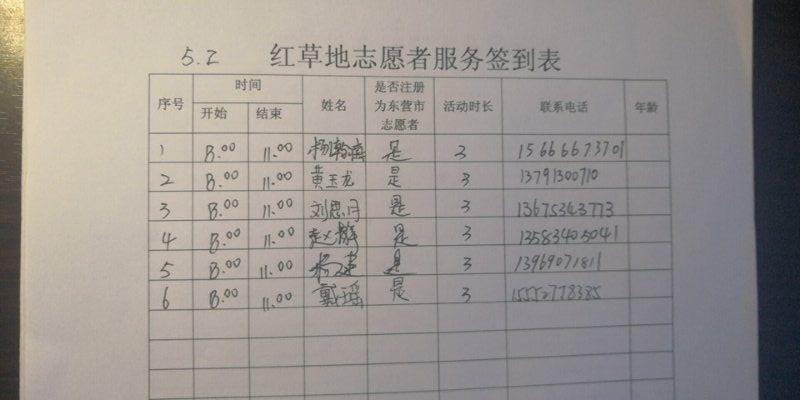 5.2 红草地志愿者服务签到表
序号 时间 姓名 是否注册为东营市志愿者 活动时长 联系电话 年龄
开始 结束
1 8.00 11.00 杨翰 是 3 15666673701
2 8.00 11.00 黄玉龙 是 3 13791300710
3 8.00 11.00 刘思月 是 3 13675343773
4 8.00 11.00 赵静 是 3 13583405041
5 8.00 11.00 杨莲 是 3 13969071811
6 8.00 11.00 戴瑶 是 3 15552778385